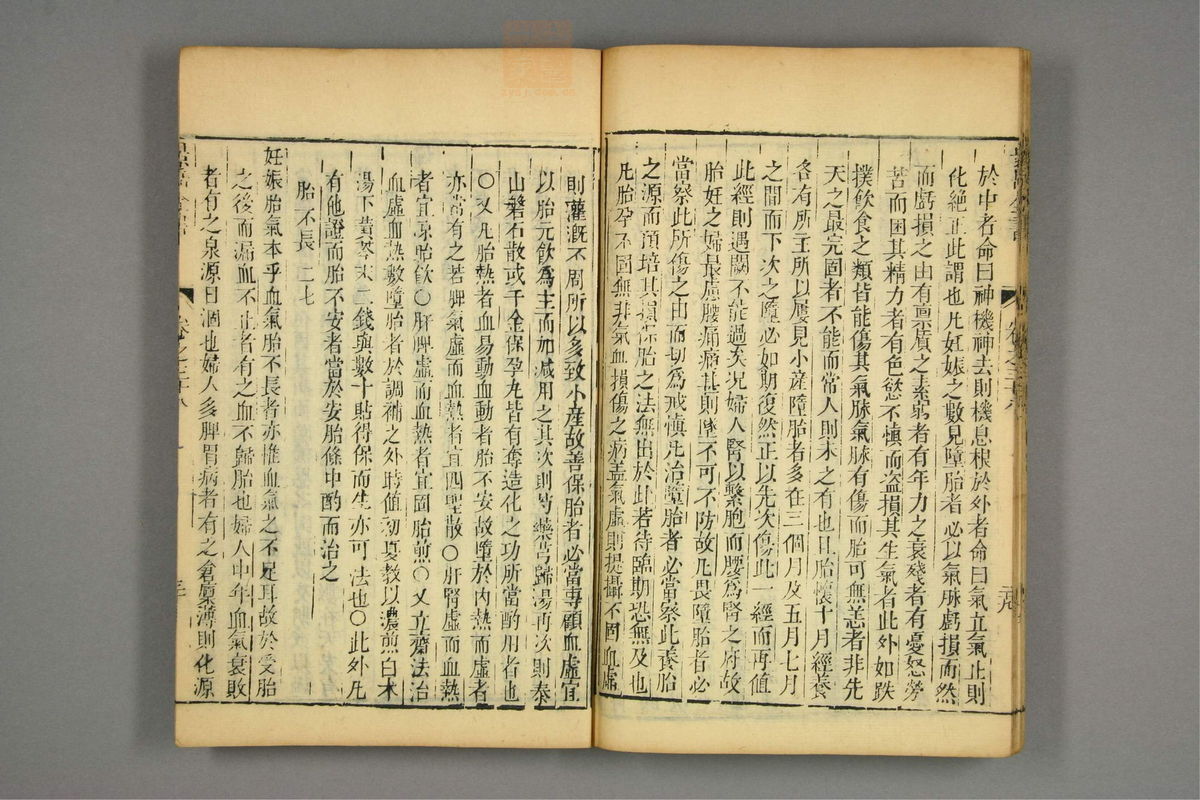 於中者命曰神機神去則機息根於外者命曰氣立氣止則
化絕正此謂也凡妊娠之數見墮胎者必以氣脉虧損而然
而虧損之由有禀質之素弱者有年力之衰殘者有憂怒勞
苦而困其精力者有色慾不愼而盗損其生氣者此外如跌
撲飲食之類皆能傷其氣脉氣脉有傷而胎可無恙者非先
天之最完固者不能而常人則未之有也且胎懷十月經養
各有所主所以屢見小產墮胎者多在三個月及五月七月
之間而下次之墮必如期復然正以先次傷此一經而再值
此經則遇闕不能過矣况婦人腎以繫胞而腰爲腎之府故
胎妊之婦最慮腰痛痛甚則墜不可不防故凡畏墮胎者必
當察此所傷之由而切爲戒愼凡治墮胎者必當察此養胎
之源而預培其損保胎之法無出於此若待臨期恐無及也
凡胎孕不固無非氣血損傷之病盖氣虛則提攝不固血虛
則灌漑不周所以多致小產故善保胎者必當專顧血虛宜
以胎元飲爲主而加減用之其次則芍藥芎歸湯再次則泰
山磐石散或千金保孕丸皆有奪造化之功所當酌用者也
○又凡胎熱者血易動血動者胎不安故墮於内熱而虛者
亦常有之若脾氣虛而血熱者宜四聖散○肝腎虛而血熱
者宜凉胎飲○肝脾虛而血熱者宜固胎煎○又立齋法治
血虛血熱數墮胎者於調補之外時值初夏教以濃煎白术
湯下黃芩末二錢與數十貼得保而生亦可法也○此外凡
有他證而胎不安者當於安胎條中酌而治之
胎不長 二七
妊娠胎氣本乎血氣胎不長者亦惟血氣之不足耳故於受胎
之後而漏血不止者有之血不歸胎也婦人中年血氣衰敗
者有之泉源日涸也婦人多脾胃病者有之倉廩薄則化源